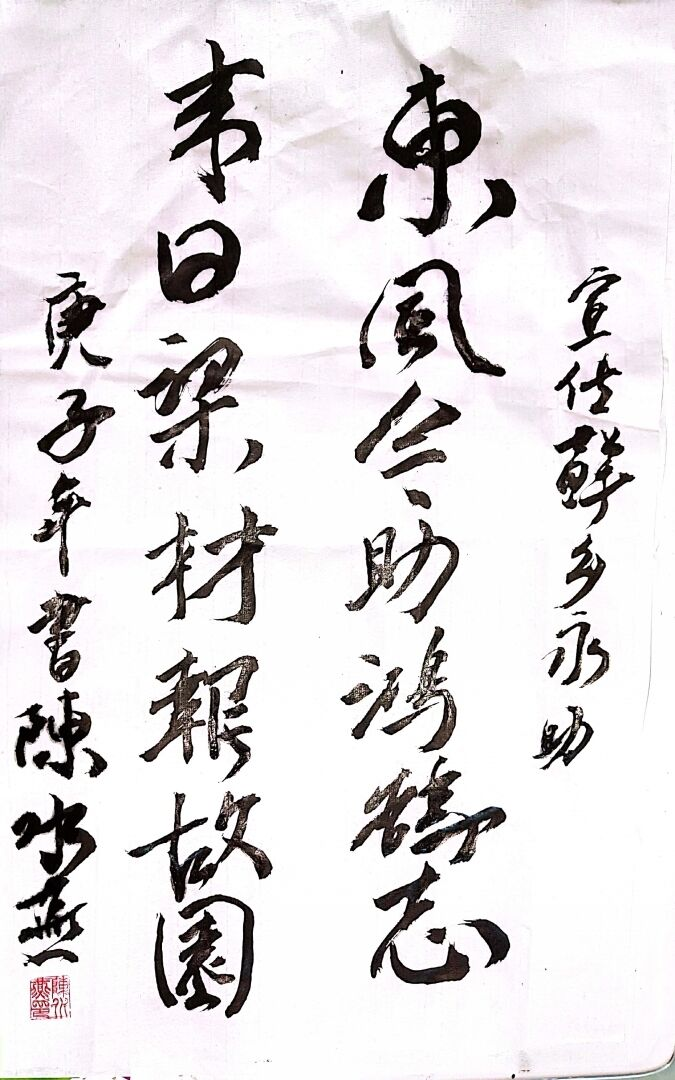 宣仕鲜乡永助
東風今助鴻鵠志
来日梁材報故園
庚子年書陳冰燕